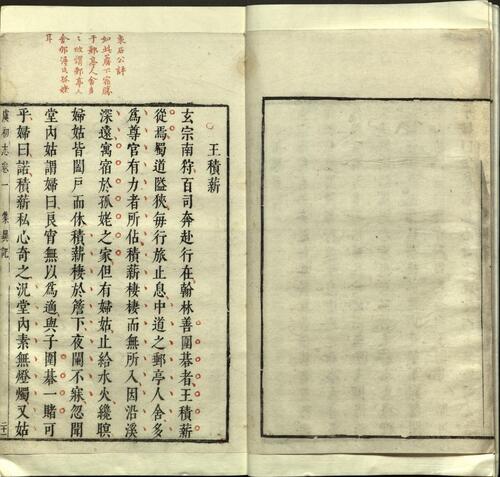 袁石公評
如此簷下宿勝
于郵亭人舍多
王積薪
玄宗南狩百司奔赴行在翰林善圍碁者王積薪
從焉蜀道隘狹每行旅止息中道之郵亭人舍多
為尊官有力者所佔積薪棲棲而無所入因沿溪
深遠寓宿於孤姥之家但有婦姑止給水火纔暝
婦姑皆闔戶而休積薪棲於簷下夜闌不寐忽聞
堂內姑謂婦曰良宵無以為適與子圍碁一賭可
乎婦曰諾積薪私心奇之況堂內素無燈燭又姑
虞初志卷一 集異記